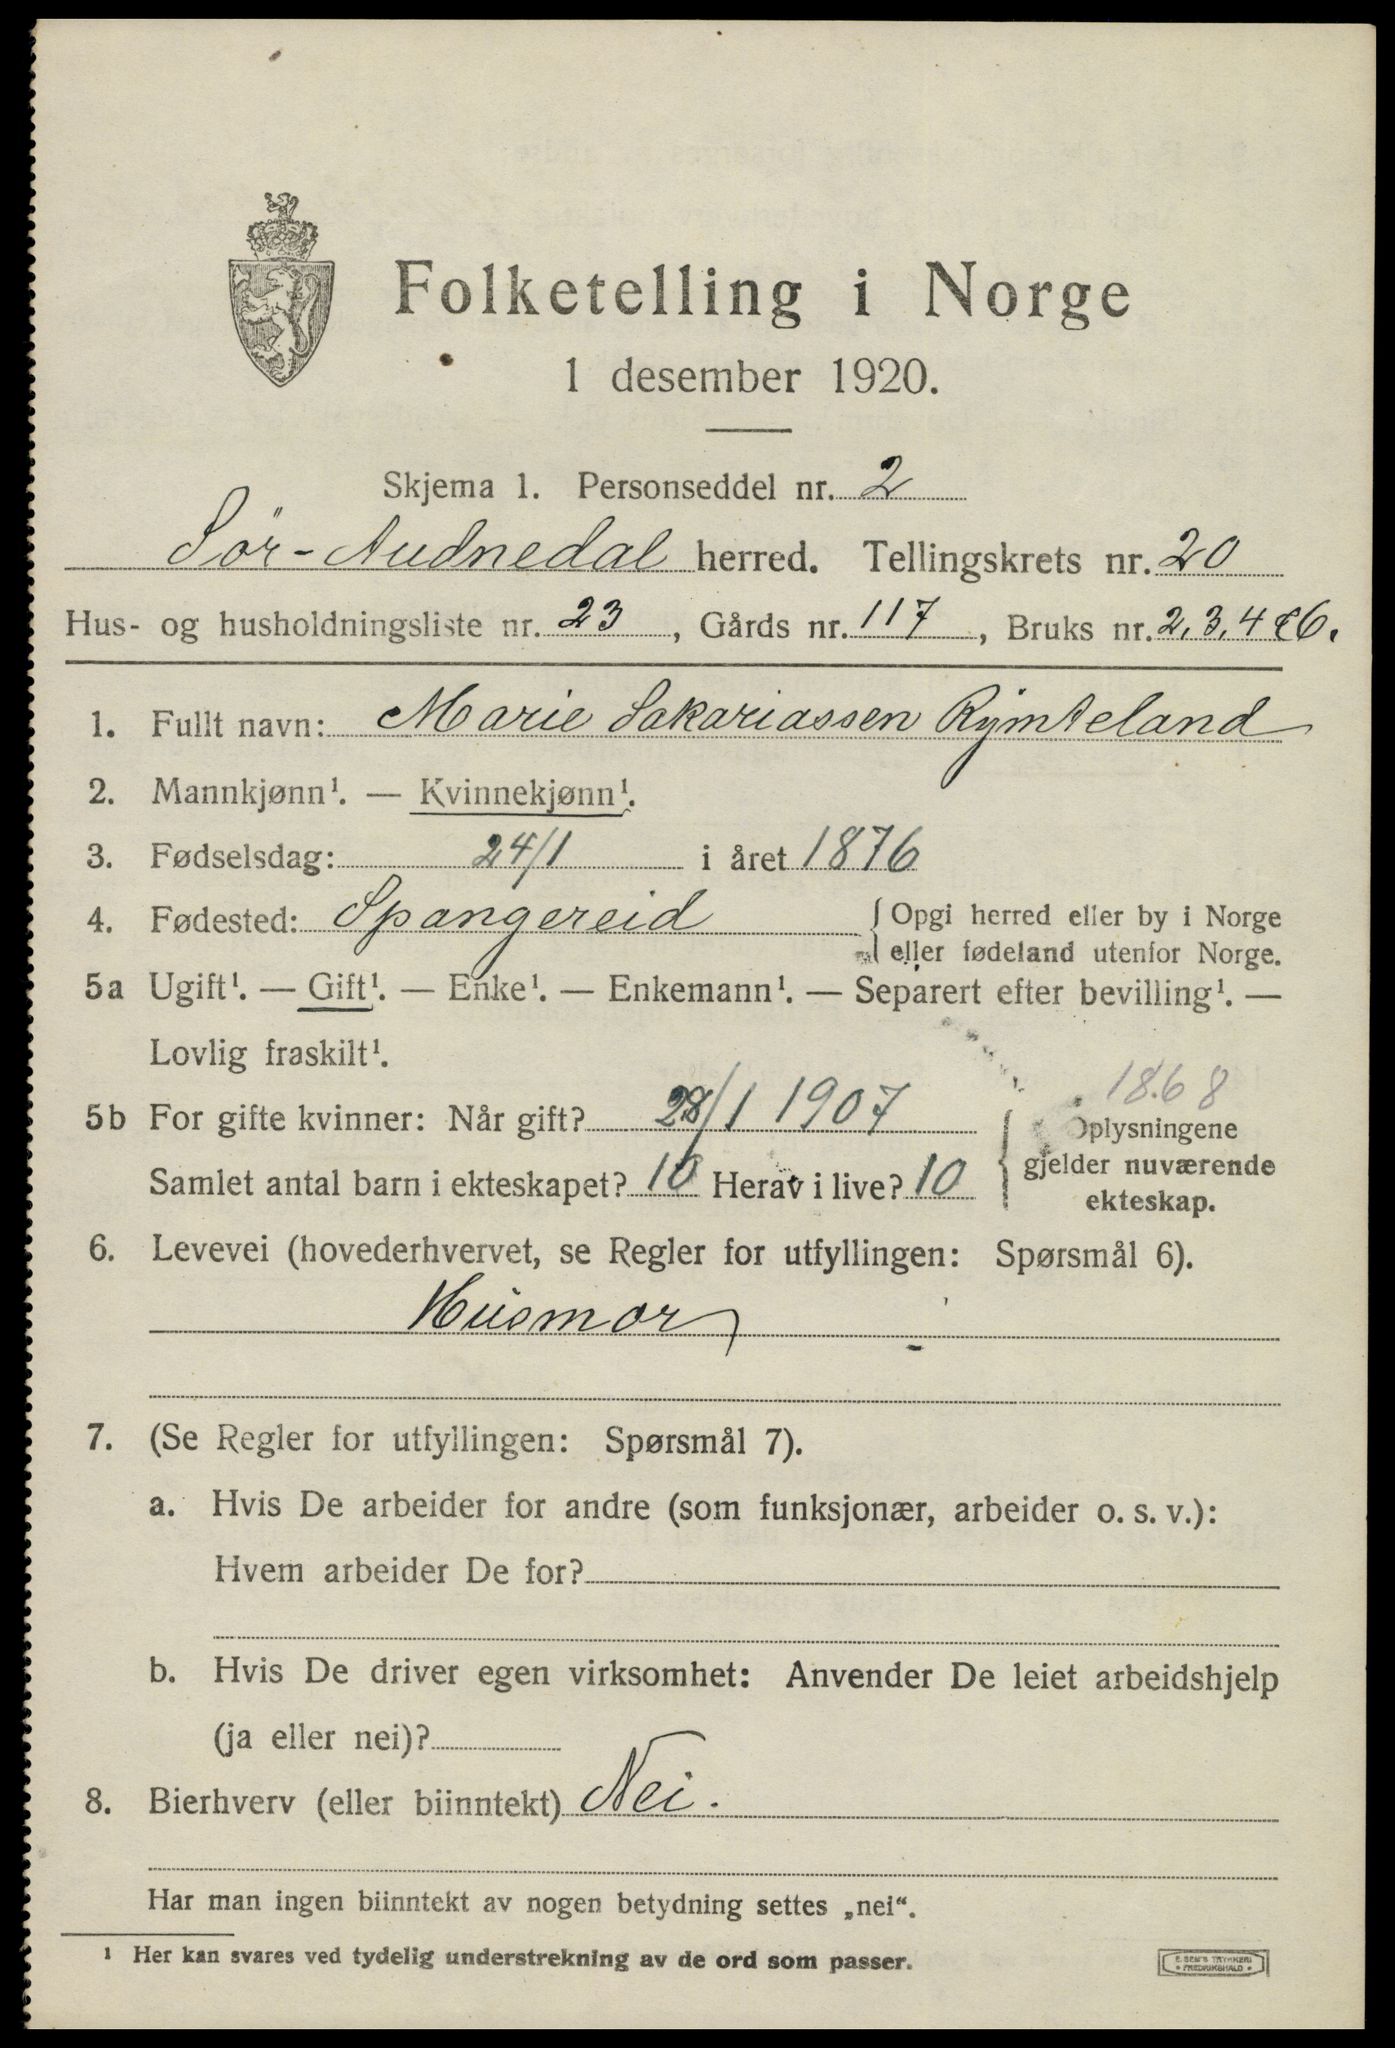 Folketelling i Norge
1 desember 1920.
Skjema 1. Personseddel nr. 2
Sör-Audnedal herred. Tellingskrets nr. 20
Hus- og husholdningsliste nr. 23, Gårds nr. 117, Bruks nr. 2, 3, 4 & 6.
1. Fullt navn: Marie Sakariassen Rymteland
2. Mannkjønn¹. — Kvinnekjønn¹.
3. Fødselsdag: 24/1 i året 1876
4. Fødested: Spangereid { Opgi herred eller by i Norge
eller fødeland utenfor Norge.
5a Ugift¹. — Gift¹. — Enke¹. — Enkemann¹. — Separert efter bevilling¹. —
Lovlig fraskilt¹.
1868
5b For gifte kvinner: Når gift? 28/1 1907 { Oplysningene
gjelder nuværende
Samlet antal barn i ekteskapet? 10 Herav i live? 10
ekteskap.
6. Levevei (hovederhvervet, se Regler for utfyllingen: Spørsmål 6).
Husmor
7. (Se Regler for utfyllingen: Spørsmål 7).
a. Hvis De arbeider for andre (som funksjonær, arbeider o. s. v.):
Hvem arbeider De for?
b. Hvis De driver egen virksomhet: Anvender De leiet arbeidshjelp
(ja eller nei)?
8. Bierhverv (eller biinntekt) Nei.
Har man ingen biinntekt av nogen betydning settes „nei“.
¹ Her kan svares ved tydelig understrekning av de ord som passer.
E. SEM'S TRYKKERI
• FREDRIKSHALD •